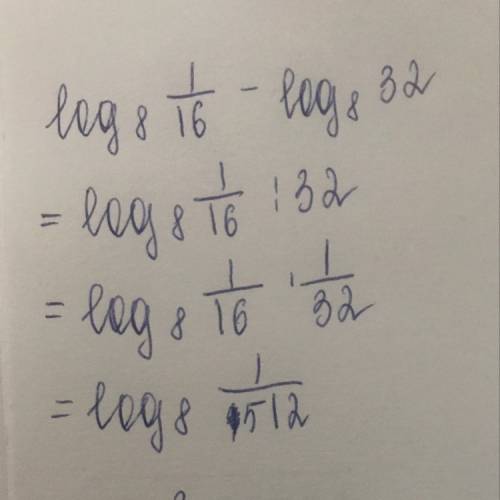 log₈ 1/16 - log₈ 32
= log₈ 1/16 : 32
= log₈ 1/16 · 1/32
= log₈ 1/512